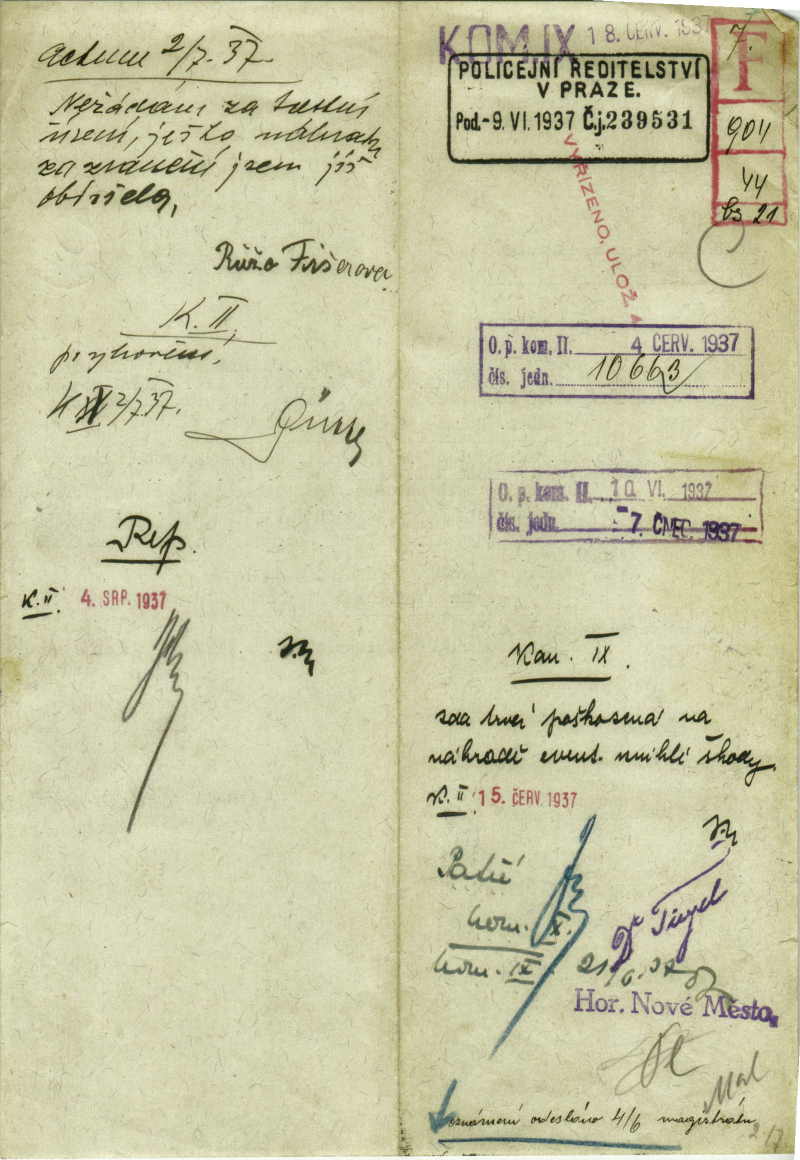 Actum 2/7. 37.
Nežádám za trestní
řízení, ješto náhradu
za zranění jsem již
obdržela,
Růža Fišerova
K. II,
po vyhovění,
K 2/7 37.
Rep.
K. II. 4. SRP. 1937
KOM. IX 18. ČERV. 1937
POLICEJNÍ ŘEDITELSTVÍ
V PRAZE.
Pod. -9. VI. 1937 Č.j. 239531
F
7.
904
44
bs 21
VYŘÍZENO, ULOŽ.
O. p. kom. II. 4 ČERV. 1937
čís. jedn. 10663
O. p. kom. II. 10 VI. 1937
čís. jedn. -7. ČNEC 1937
Kom. IX.
zda trvá poškozená na
náhradě event. vzniklé škody.
K. II 15. ČERV. 1937
Patří
kom. X.
kom. IX. 21/6. 37
Dr
Hor. Nové Město.
oznámení odesláno 4/6 magistrátu